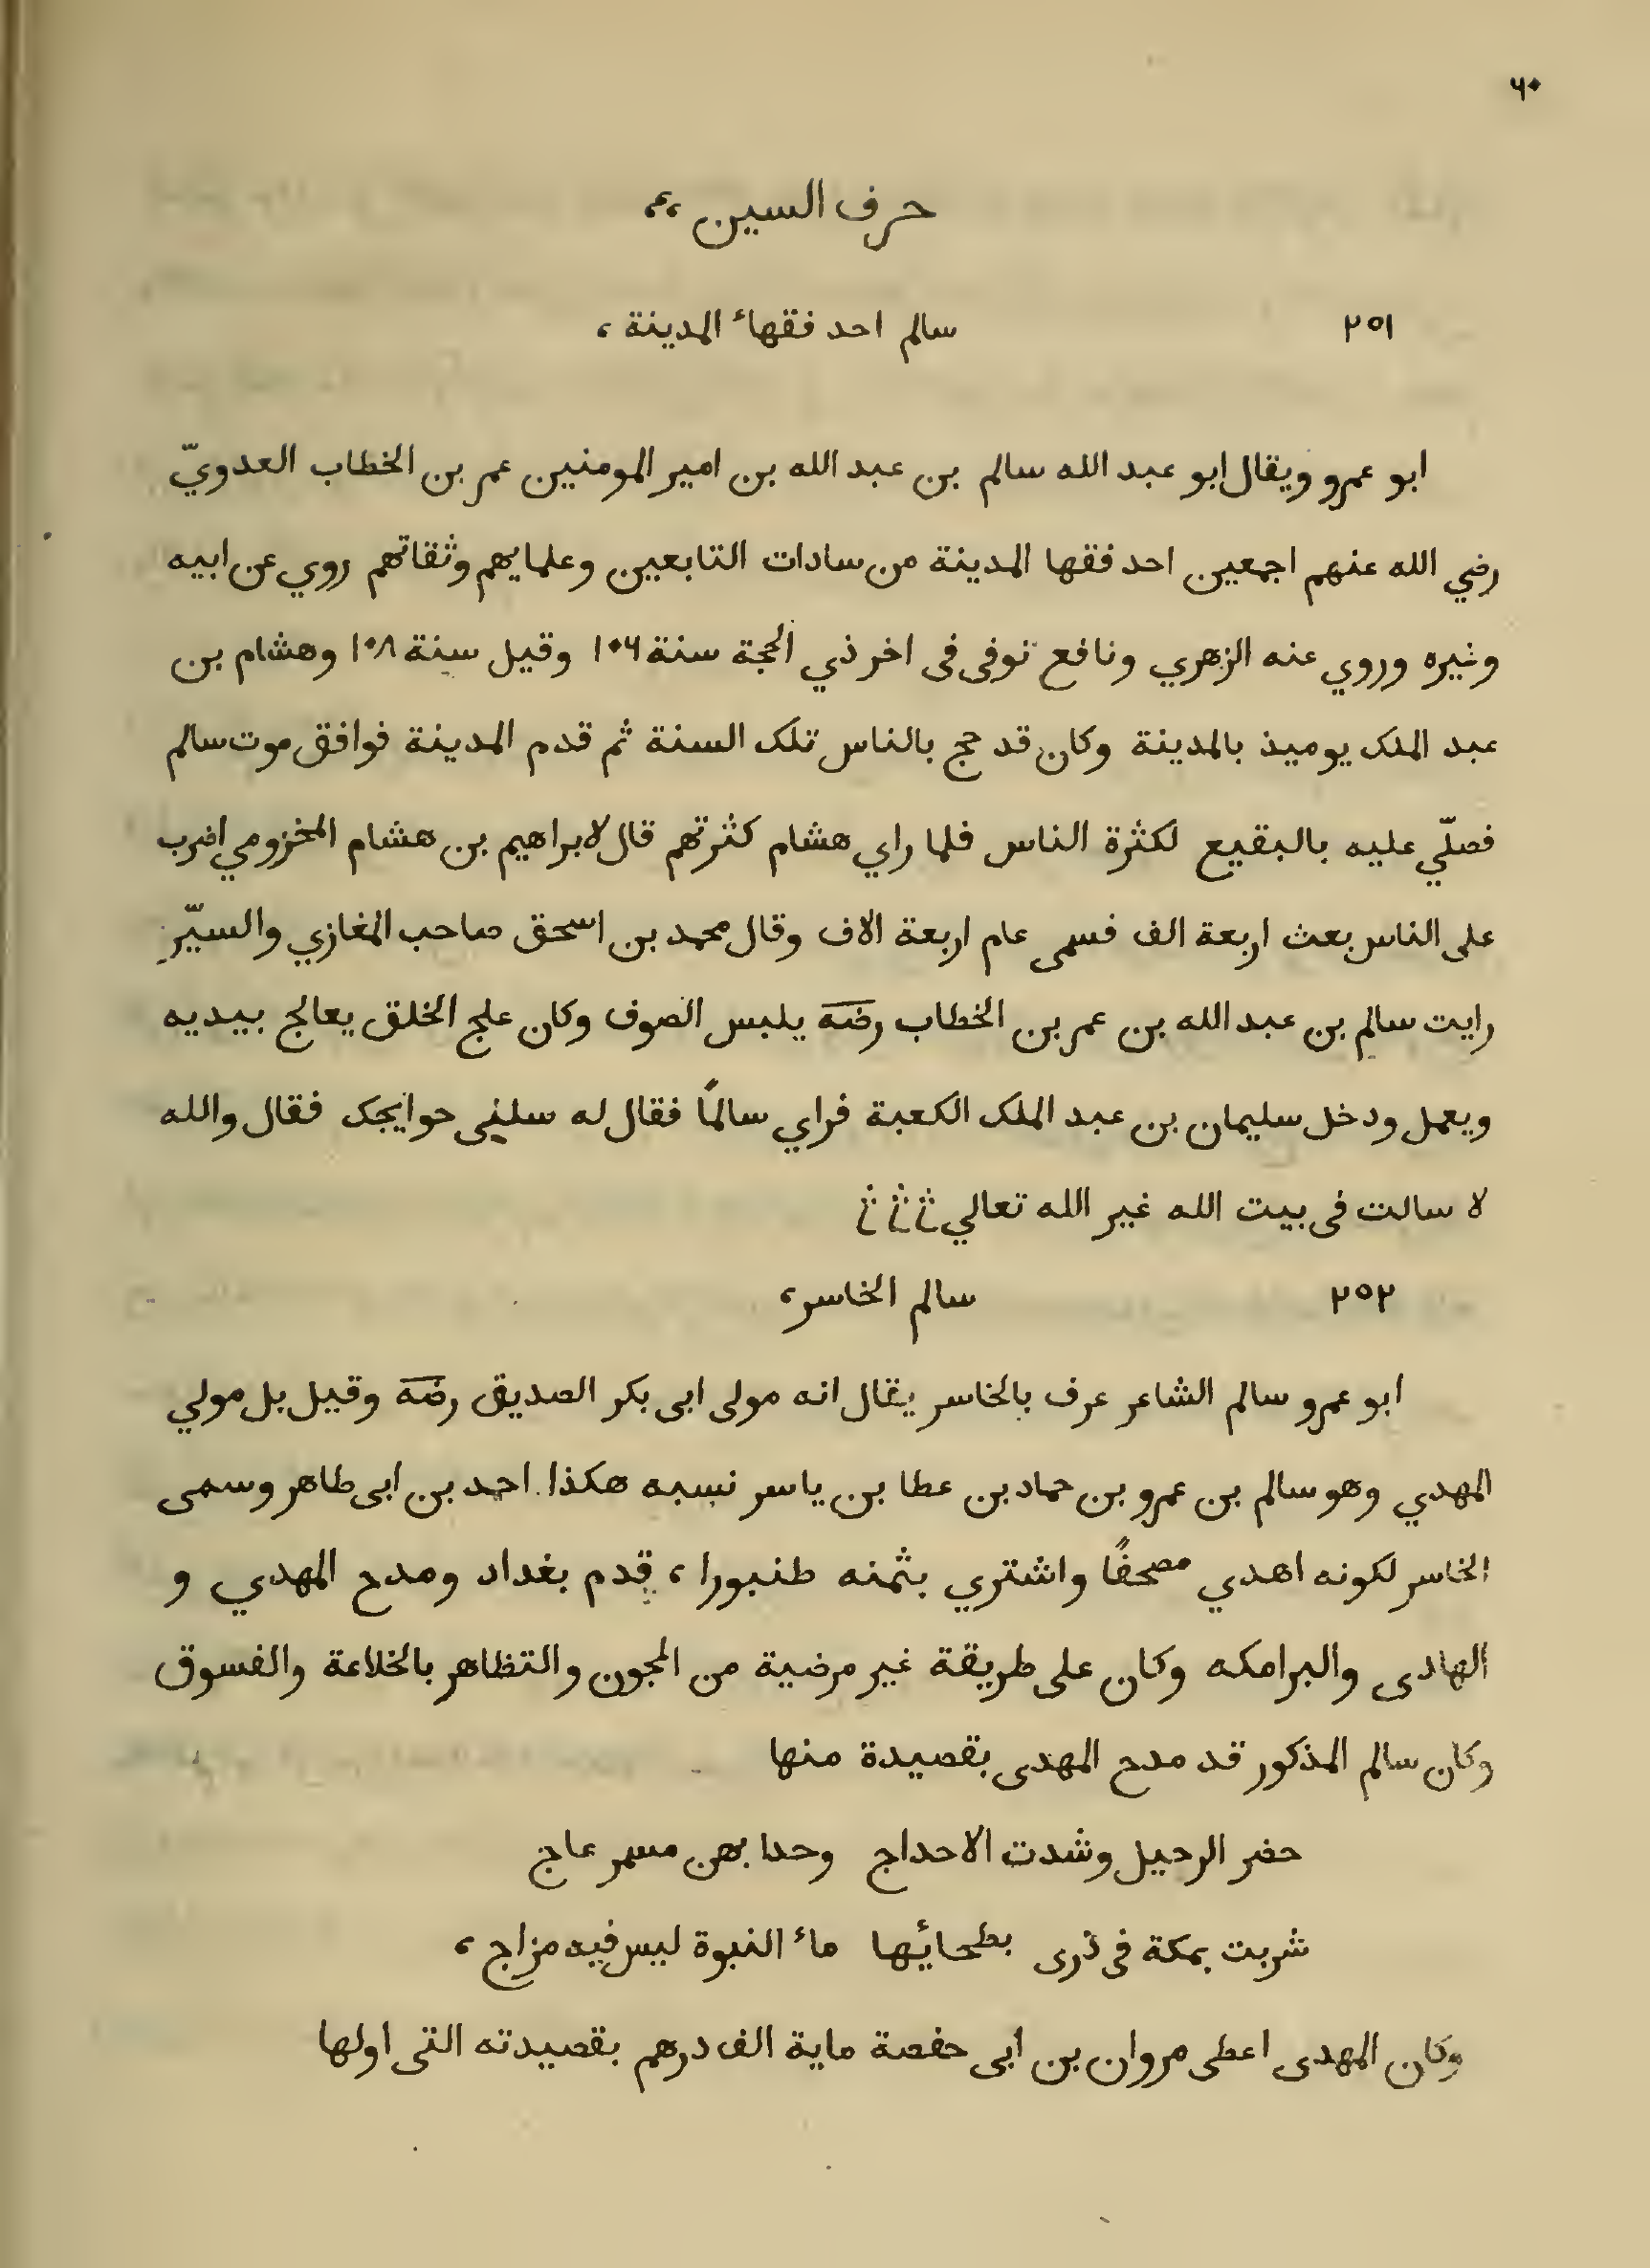 ٦٠
حرف السين ،،
٢٥١ سالم احد فقهاء المدينة ،
ابو عمرو ويقال ابو عبد الله سالم بن عبد الله بن امير المومنين عمر بن الخطاب العدويّ
رضي الله عنهم اجمعين احد فقها المدينة من سادات التابعين وعلمايهم وثقاتهم روي عن ابيه
وغيره وروي عنه الزهري ونافع توفى فى اخر ذي الحجة سنة ١٠٦ وقيل سنة ١٠٨ وهشام بن
عبد الملك يوميذ بالمدينة وكان قد حج بالناس تلك السنة ثم قدم المدينة فوافق موت سالم
فصلّي عليه بالبقيع لكثرة الناس فلما راي هشام كثرتهم قال لابراهيم بن هشام المخزومي اضرب
على الناس بعث اربعة الف فسمى عام اربعة الاف وقال محمد بن اسحق صاحب المغازي والسيّر
رايت سالم بن عبد الله بن عمر بن الخطاب رضه يلبس الصوف وكان علج الخلق يعالج بيديه
ويعمل ودخل سليمان بن عبد الملك الكعبة فراي سالمًا فقال له سلني حوايجك فقال والله
لا سالت فى بيت الله غير الله تعالي
٢٥٢ سالم الخاسر،
ابو عمرو سالم الشاعر عرف بالخاسر يقال انه مولى ابى بكر الصديق رضه وقيل بل مولي
المهدي وهو سالم بن عمرو بن حماد بن عطا بن ياسر نسبه هكذا احمد بن ابى طاهر وسمى
الخاسر لكونه اهدي مصحفًا واشتري بثمنه طنبورا ، قدم بغداد ومدح المهدي و
الهادى والبرامكه وكان على طريقة غير مرضية من المجون والتظاهر بالخلاعة والفسوق
وكان سالم المذكور قد مدح المهدى بقصيدة منها
حضر الرحيل وشدت الاحداج وحدا بهن مسمر عاج
شربت بمكة فى ذرى بطحائها ماء النبوة ليس فيه مزاج ،
وكان المهدى اعطى مروان بن ابى حفصة ماية الف درهم بقصيدته التى اولها